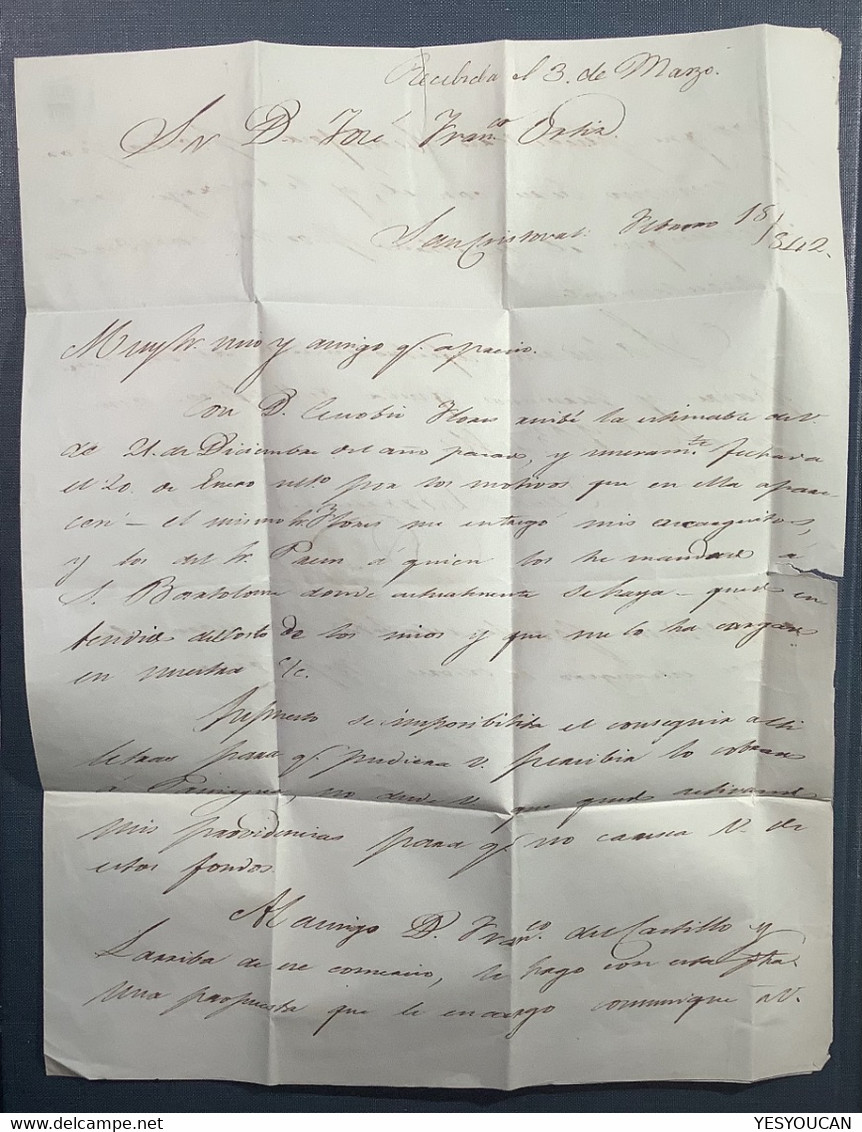 Recibida el 3. de Marzo.
Sr. D. José Franco. Ortiz.
San Cristoval Febrero 18/842.
Muy Sr. mio y amigo q. aprecio.
Con D. Cenobio Flores recibí la estimable de V.
de 21. de Diciembre del año pasado, y fechada
el 20. de Enero por los motivos que en ella apare
cen - el mismo Sr. Flores me entregó mis encarguitos,
y los del Sr. á quien los he mandado a
S. Bartolome donde actualmente se haya - quedo en
tendido del costo de los mios y que me lo ha cargado
en nuestra c/c.
Supuesto se imposibilita el conseguir alli
letras para q. pudiera V. percibir lo cobrado
á no dude V. que quedo activando
mis providencias para q. no caresca V. de
estos fondos.
Al amigo D. Franco. del Castillo y
Larriba de ese comercio, le hago con esta fha.
una propuesta que le encargo comunique á V.
YESYOUCAN